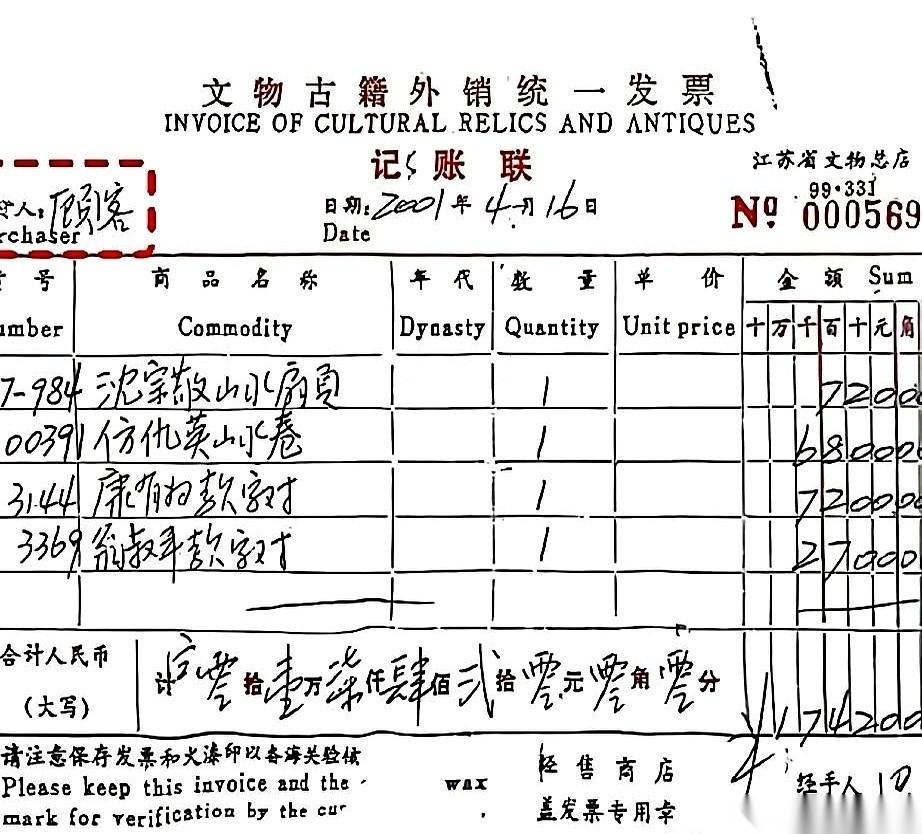 文物古籍外销统一发票
INVOICE OF CULTURAL RELICS AND ANTIQUES
记账联
江苏省文物总店
99·331
人:顾客
rchaser
日期: 2001年4月16日
Date
№ 000569
号 商品名称 年代 数量 单价 金额 Sum
umber Commodity Dynasty Quantity Unit price 十万千百十元角
7-984 沈宗敬山水扇頁 1 72000
00391 仿仇英山水卷 1 680000
3144 康有为款字对 1 720000
3369 翁叔年款字对 1 27000
合计人民币
(大写)
计 零拾壹万柒仟肆佰贰拾零元零角零分
¥1742000
请注意保存发票和火漆印以备海关验
Please keep this invoice and the wax
mark for verification by the cu
经售商店
盖发票专用章
经手人